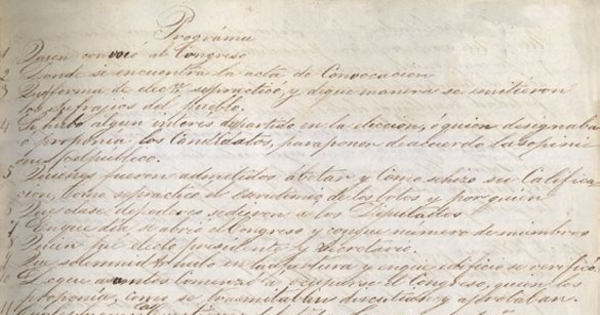 Programa
1 Quien convocó al Congreso
2 Donde se encuentra la acta de Convocacion
3 Que forma de elecn. se practicó, y de que manera se emitieron
los sufragios del Pueblo.
4 Si hubo algun interes de partido en la eleccion, ó quien designaba
o proponia los Candidatos, para poner de acuerdo la opini-
on del publico.
5 Quienes fueron admitidos á votar y como se hizo su Califica-
cion, como se practicó el escrutinio de los votos y por quien
6 Que clase de poderes se dieron a los Diputados
7 En que dia se abrió el Congreso y con que numero de miembros
8 Quien fue electo presidente y Secretario.
9 Que solemnidad hubo en la apertura y en que edificio se verificó.
10 De que asuntos comenzó á ocuparse el Congreso, quien los
proponia, como se trasmitaban discutian y aprobaban.
11